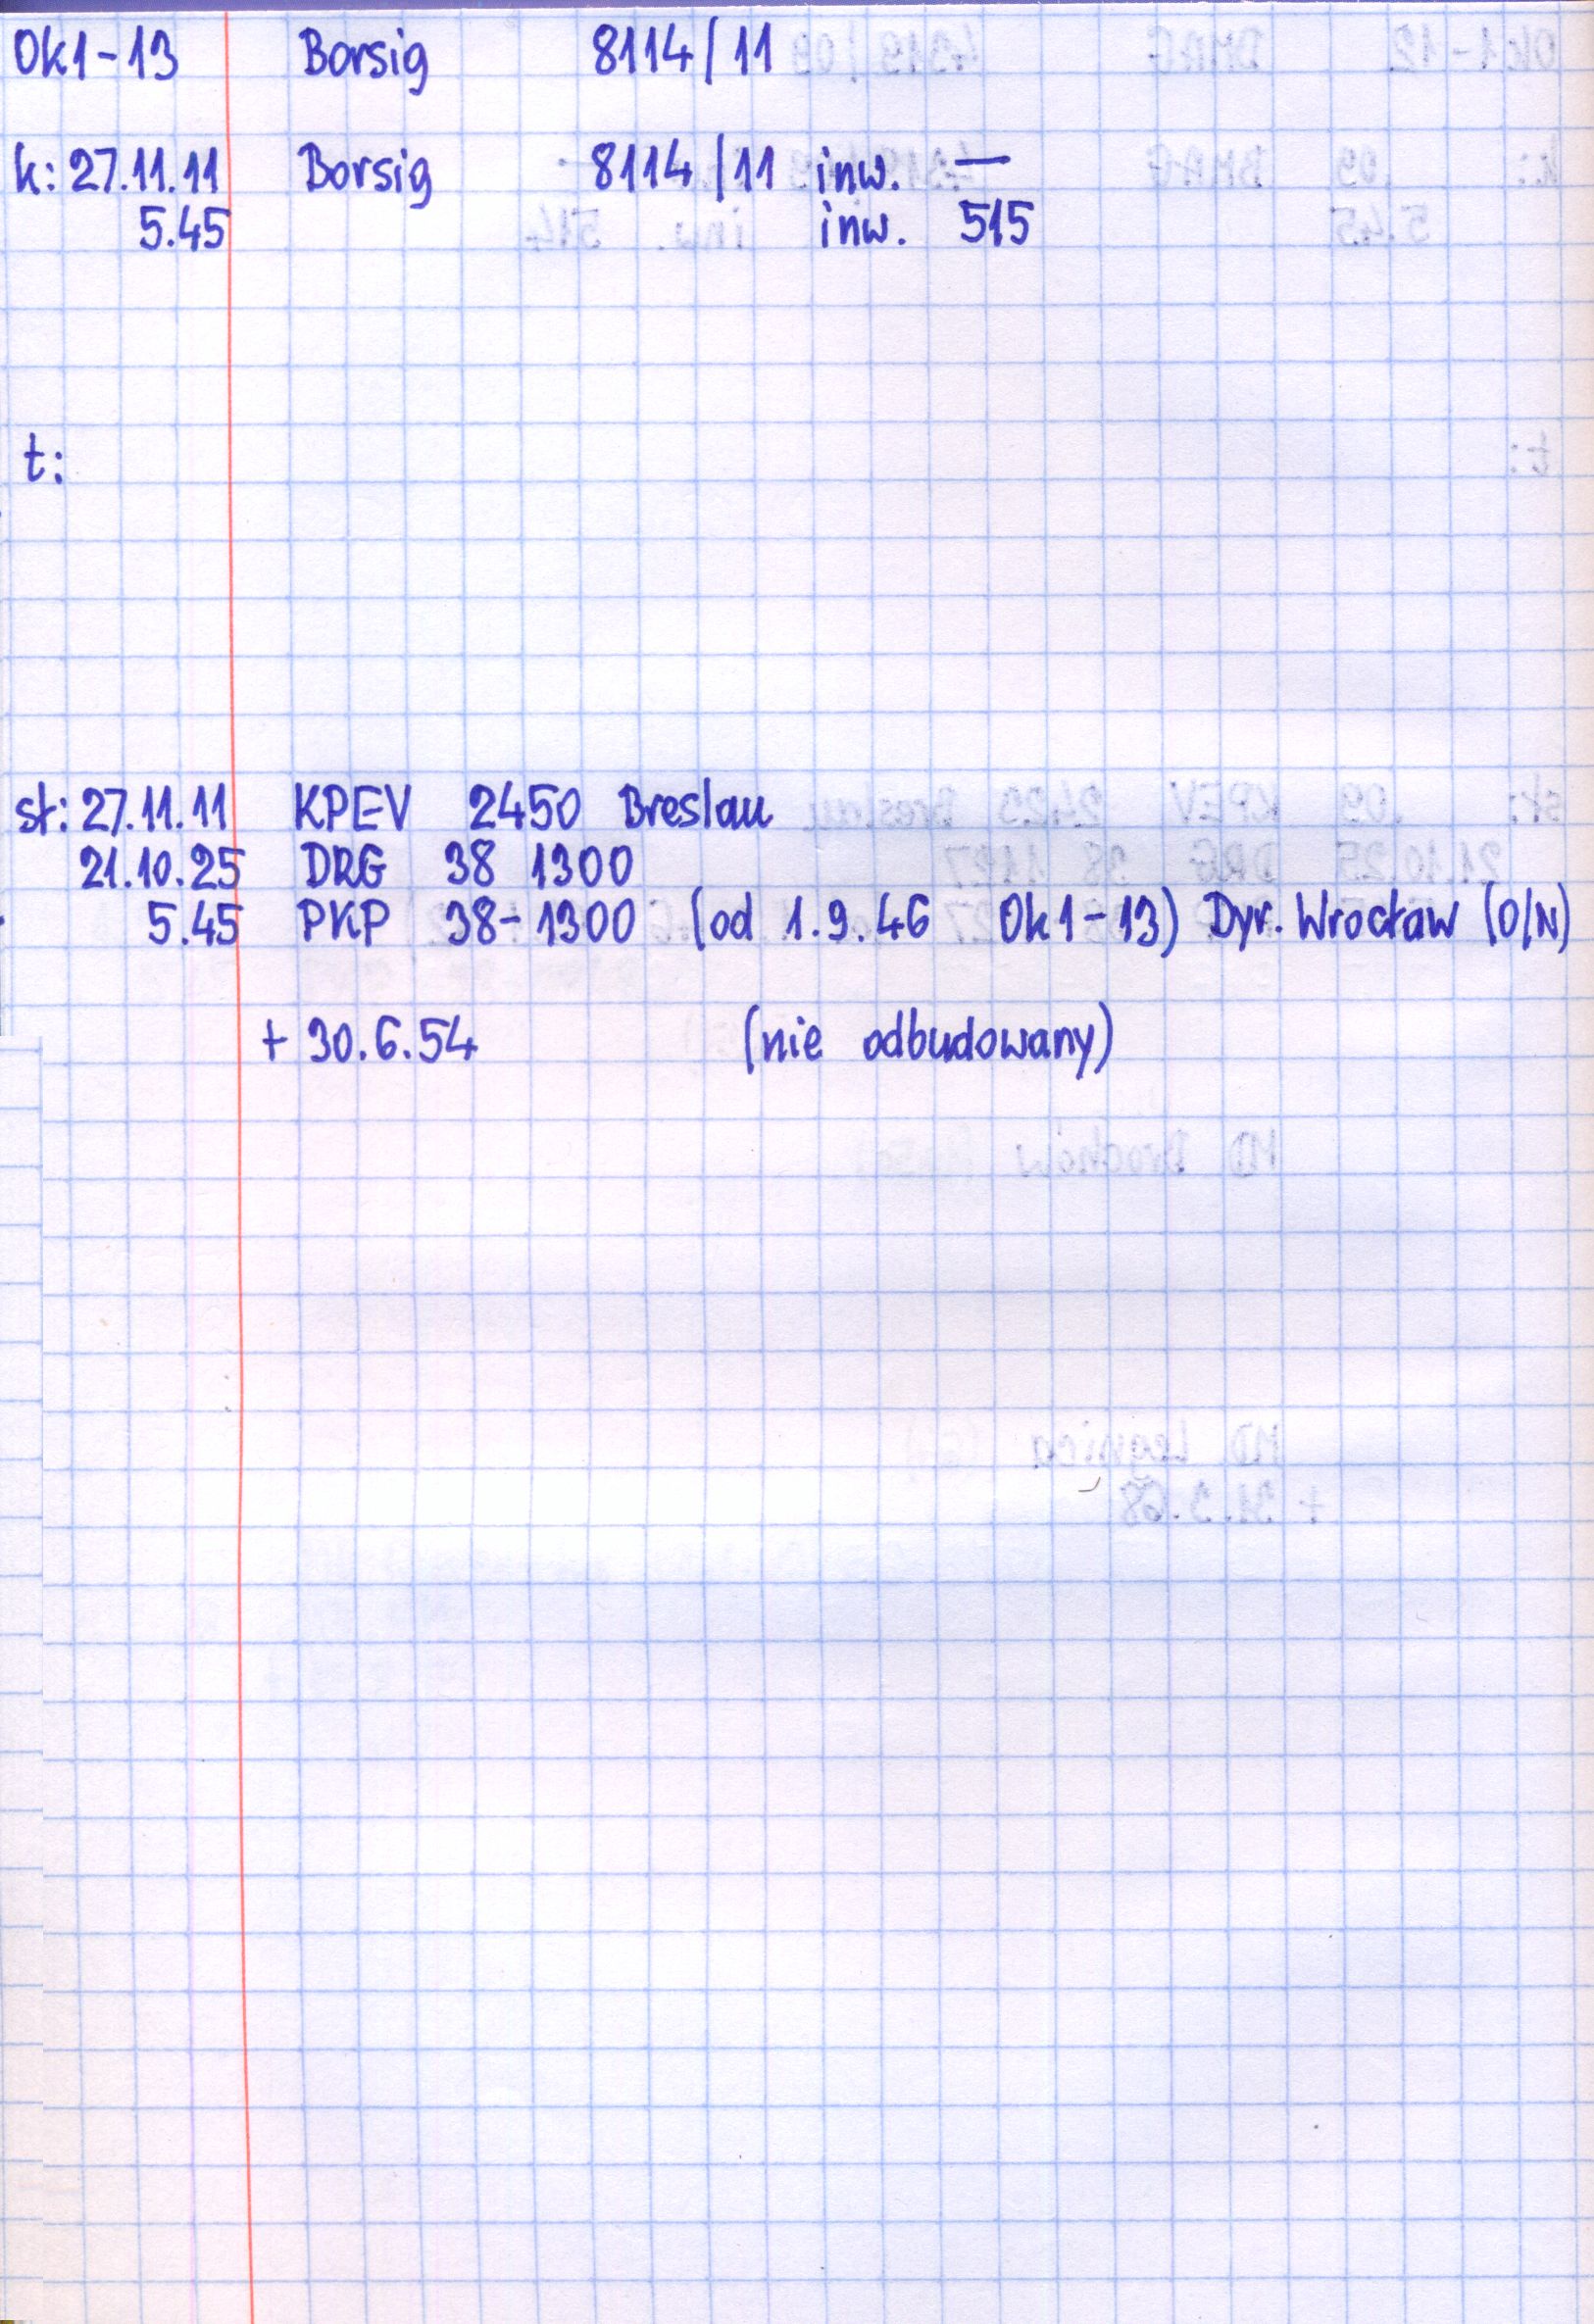 Ok1-13 Borsig 8114/11
k: 27.11.11 Borsig 8114/11 inw. —
5.45 inw. 515
t:
st: 27.11.11 KPEV 2450 Breslau
21.10.25 DRG 38 1300
5.45 PKP 38-1300 (od 1.9.46 Ok1-13) Dyr. Wrocław (O/N)
+ 30.6.54 (nie odbudowany)